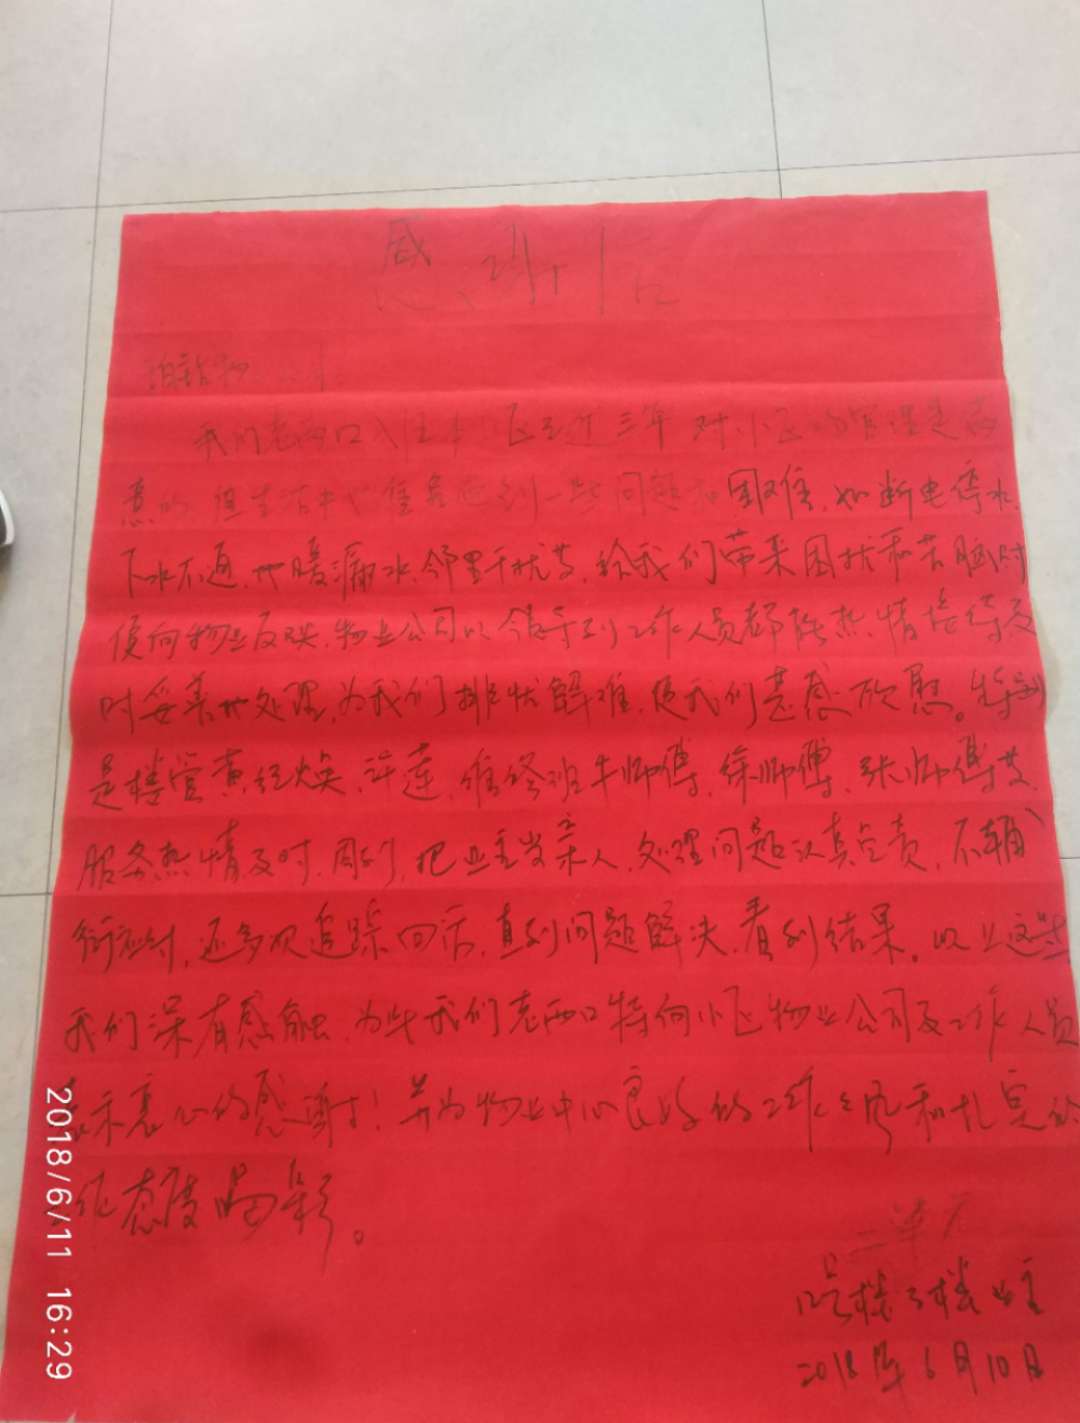 感谢信
我们老两口入住本小区已近三年对小区的管理是满
意的,但生活中也难免碰到一些问题和困难,如断电停水,
下水不通,地暖漏水,邻里干扰等,给我们带来困扰和苦恼时
便向物业反映,物业公司从领导到工作人员都能热情接待及
时妥善地处理,为我们排忧解难,使我们甚感欣慰。特别
是楼管黄红焕、许莲,维修班牛师傅,徐师傅,张师傅等,
服务热情及时,周到,把业主当亲人,处理问题认真负责,不
衍应付,还多次追踪回话,直到问题解决,看到结果。以上这些
我们深有感触,为此我们老两口特向小区物业公司及工作人员
表示衷心的感谢!并为物业中心良好的工作之风和扎实的
作态度喝彩。
二单元
楼3楼业主
2018年6月10日
2018/6/11 16:29